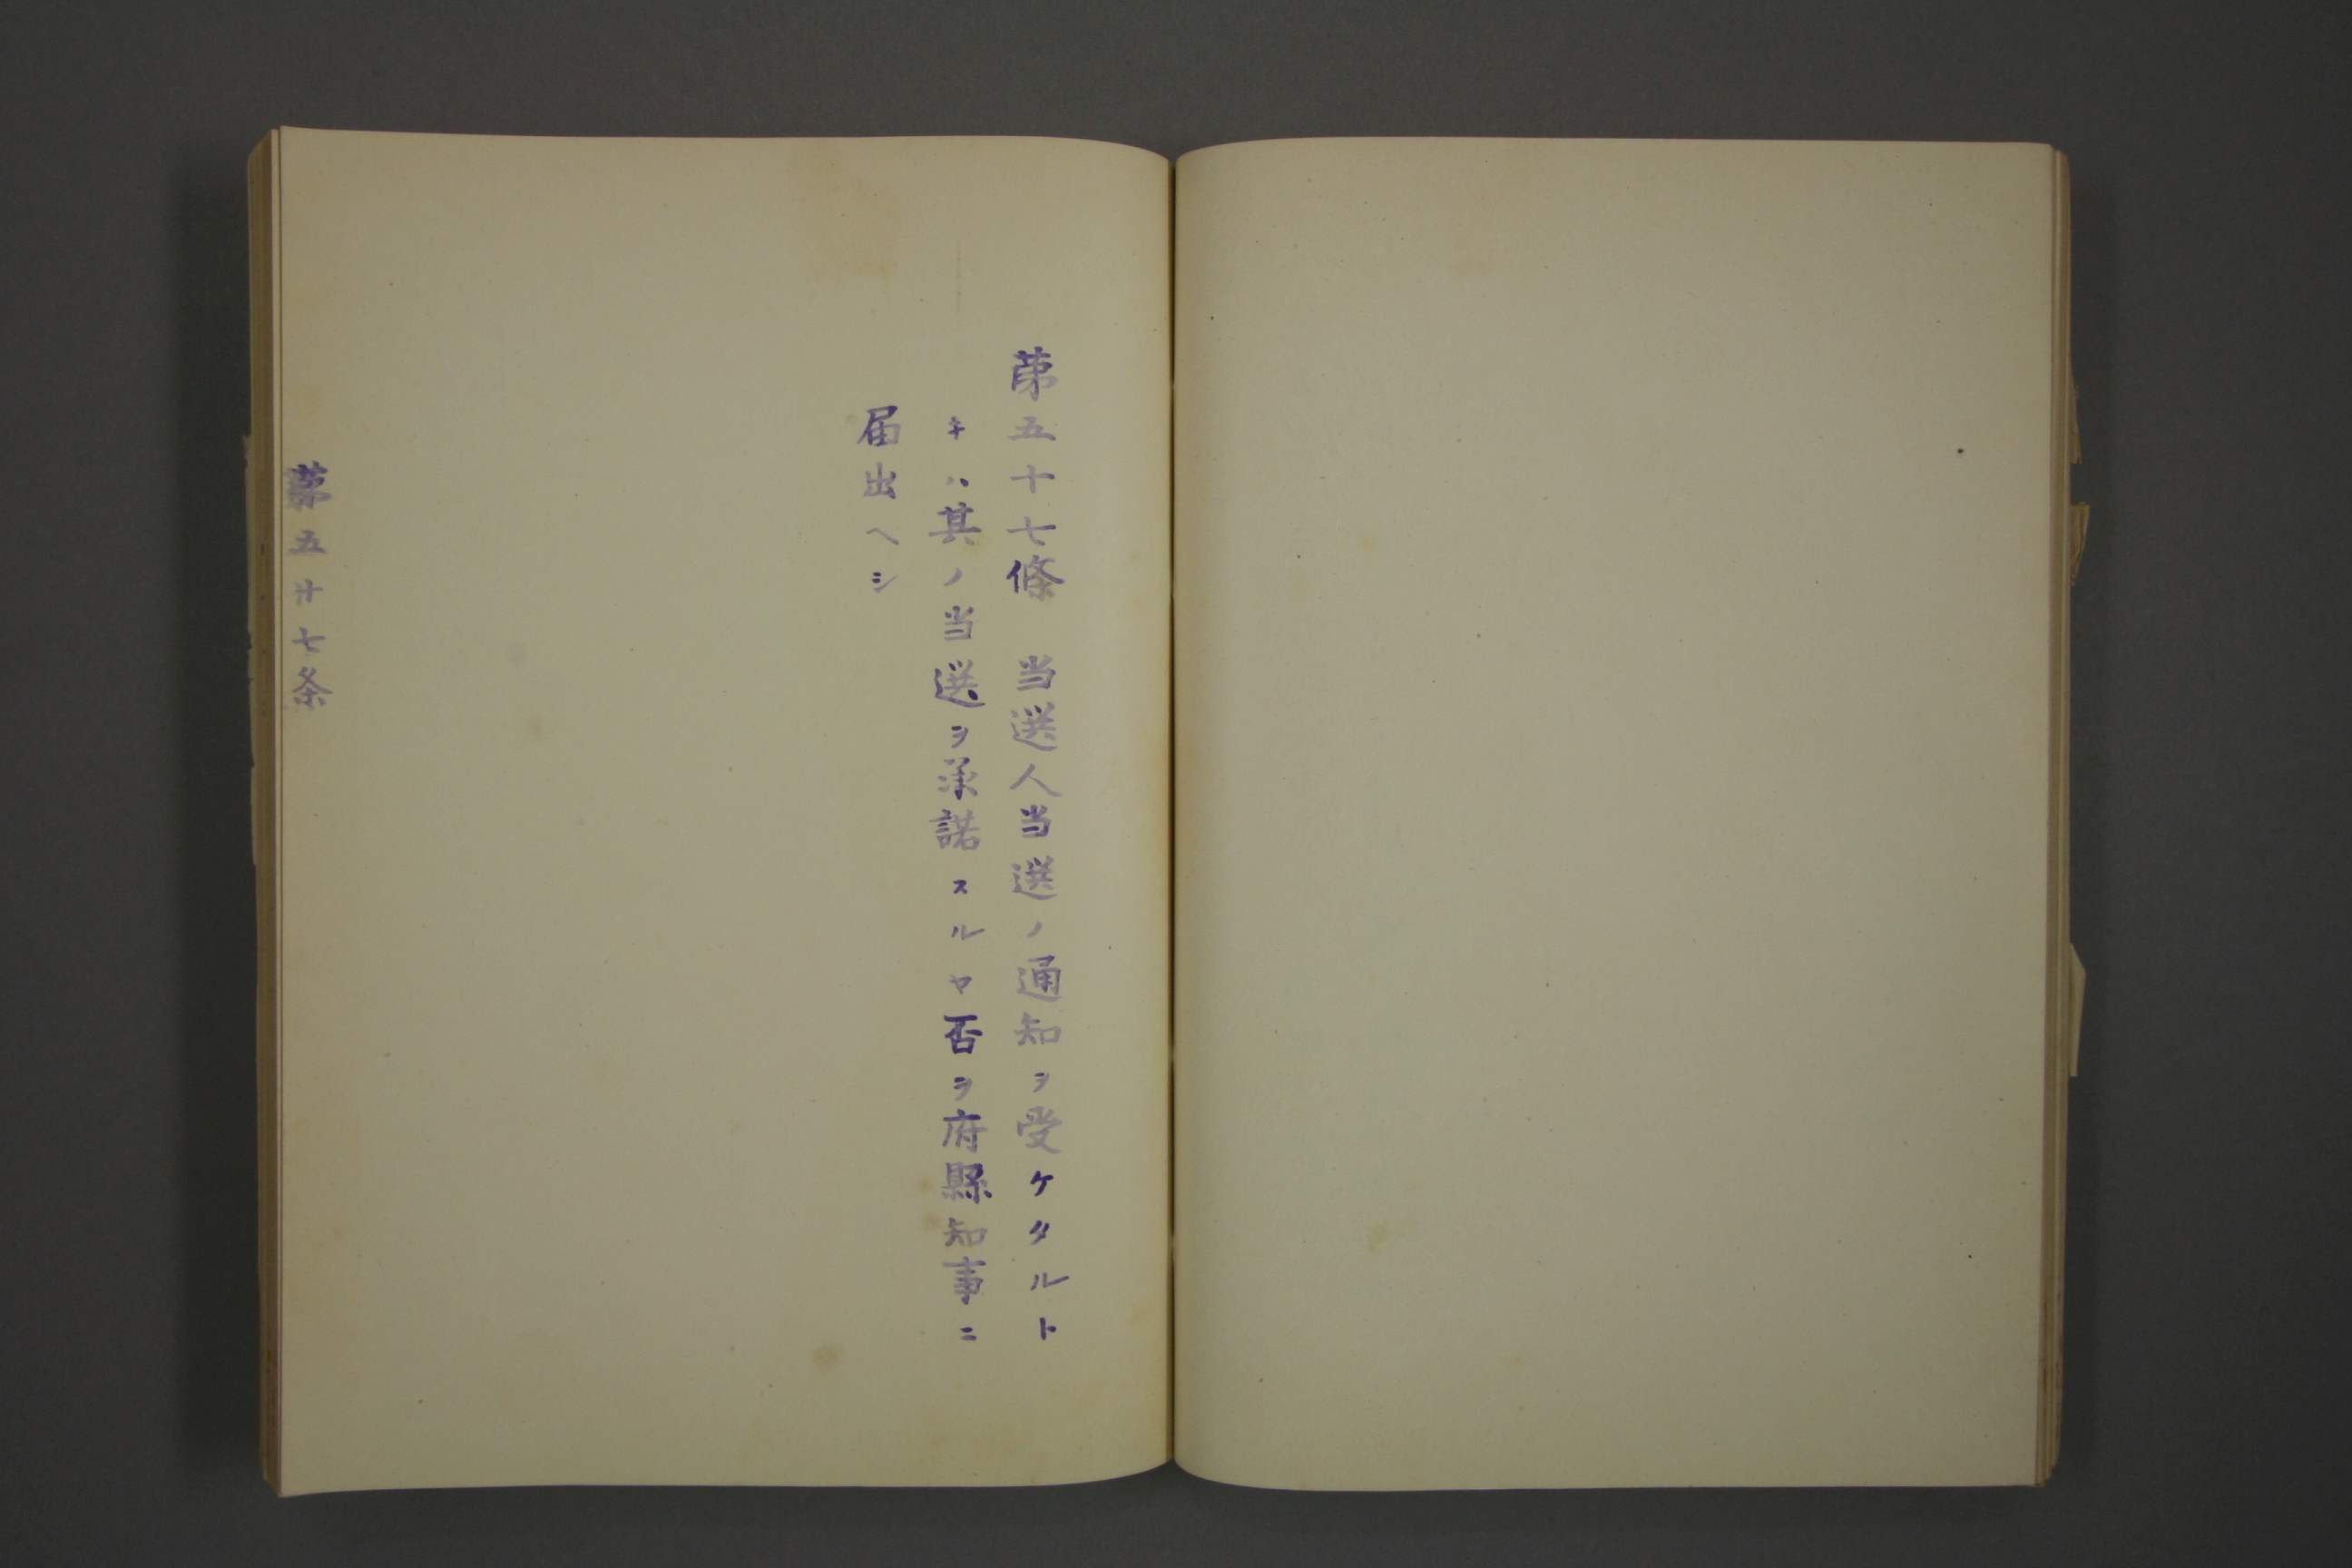 第五十七條　当選人当選ノ通知ヲ受ケタルト
キハ其ノ当選ヲ承諾スルヤ否ヲ府縣知事ニ
届出ヘシ
第五十七条